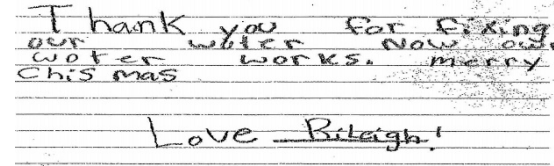 Thank you for fixing
our water Now our
woter works. merry
Chis mas
Love Rileigh!